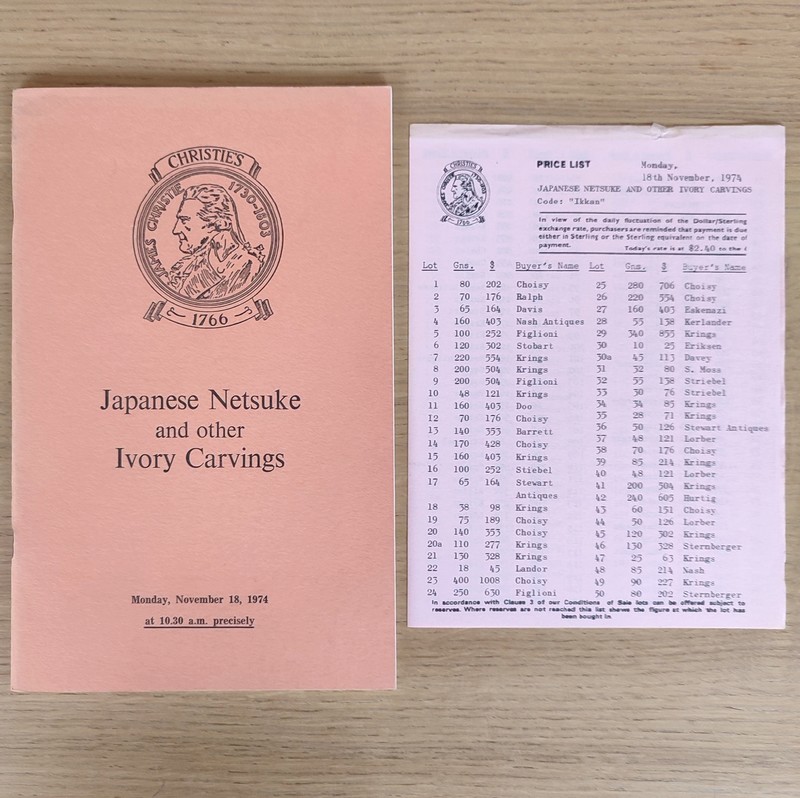 CHRISTIE'S
JAMES CHRISTIE 1730-1803
1766
Japanese Netsuke
and other
Ivory Carvings
Monday, November 18, 1974
at 10.30 a.m. precisely
CHRISTIE'S
JAMES CHRISTIE 1730-1803
1766
PRICE LIST Monday,
18th November, 1974
JAPANESE NETSUKE AND OTHER IVORY CARVINGS
Code: "Ikkan"
In view of the daily fluctuation of the Dollar/Sterling
exchange rate, purchasers are reminded that payment is due
either in Sterling or the Sterling equivalent on the date of
payment. Today's rate is at $2.40 to the
Lot Gns. $ Buyer's Name
1 80 202 Choisy
2 70 176 Ralph
3 65 164 Davis
4 160 403 Nash Antiques
5 100 252 Figlioni
6 120 302 Stobart
7 220 554 Krings
8 200 504 Krings
9 200 504 Figlioni
10 48 121 Krings
11 160 403 Doo
12 70 176 Choisy
13 140 353 Barrett
14 170 428 Choisy
15 160 403 Krings
16 100 252 Stiebel
17 65 164 Stewart
Antiques
18 38 98 Krings
19 75 189 Choisy
20 140 353 Choisy
20a 110 277 Krings
21 130 328 Krings
22 18 45 Landor
23 400 1008 Choisy
24 250 630 Figlioni
Lot Gns. $ Buyer's Name
25 280 706 Choisy
26 220 554 Choisy
27 160 403 Eskenazi
28 55 138 Kerlander
29 340 855 Krings
30 10 25 Eriksen
30a 45 113 Davey
31 32 80 S. Moss
32 55 138 Striebel
33 30 76 Striebel
34 34 85 Krings
35 28 71 Krings
36 50 126 Stewart Antiques
37 48 121 Lorber
38 70 176 Choisy
39 85 214 Krings
40 48 121 Lorber
41 200 504 Krings
42 240 605 Hurtig
43 60 151 Choisy
44 50 126 Lorber
45 120 302 Krings
46 130 328 Sternberger
47 25 63 Krings
48 85 214 Nash
49 90 227 Krings
50 80 202 Sternberger
In accordance with Clause 2 of our Conditions of Sale lots can be offered subject to
reserves. Where reserves are not reached this list shows the figure at which the lot has
been bought in